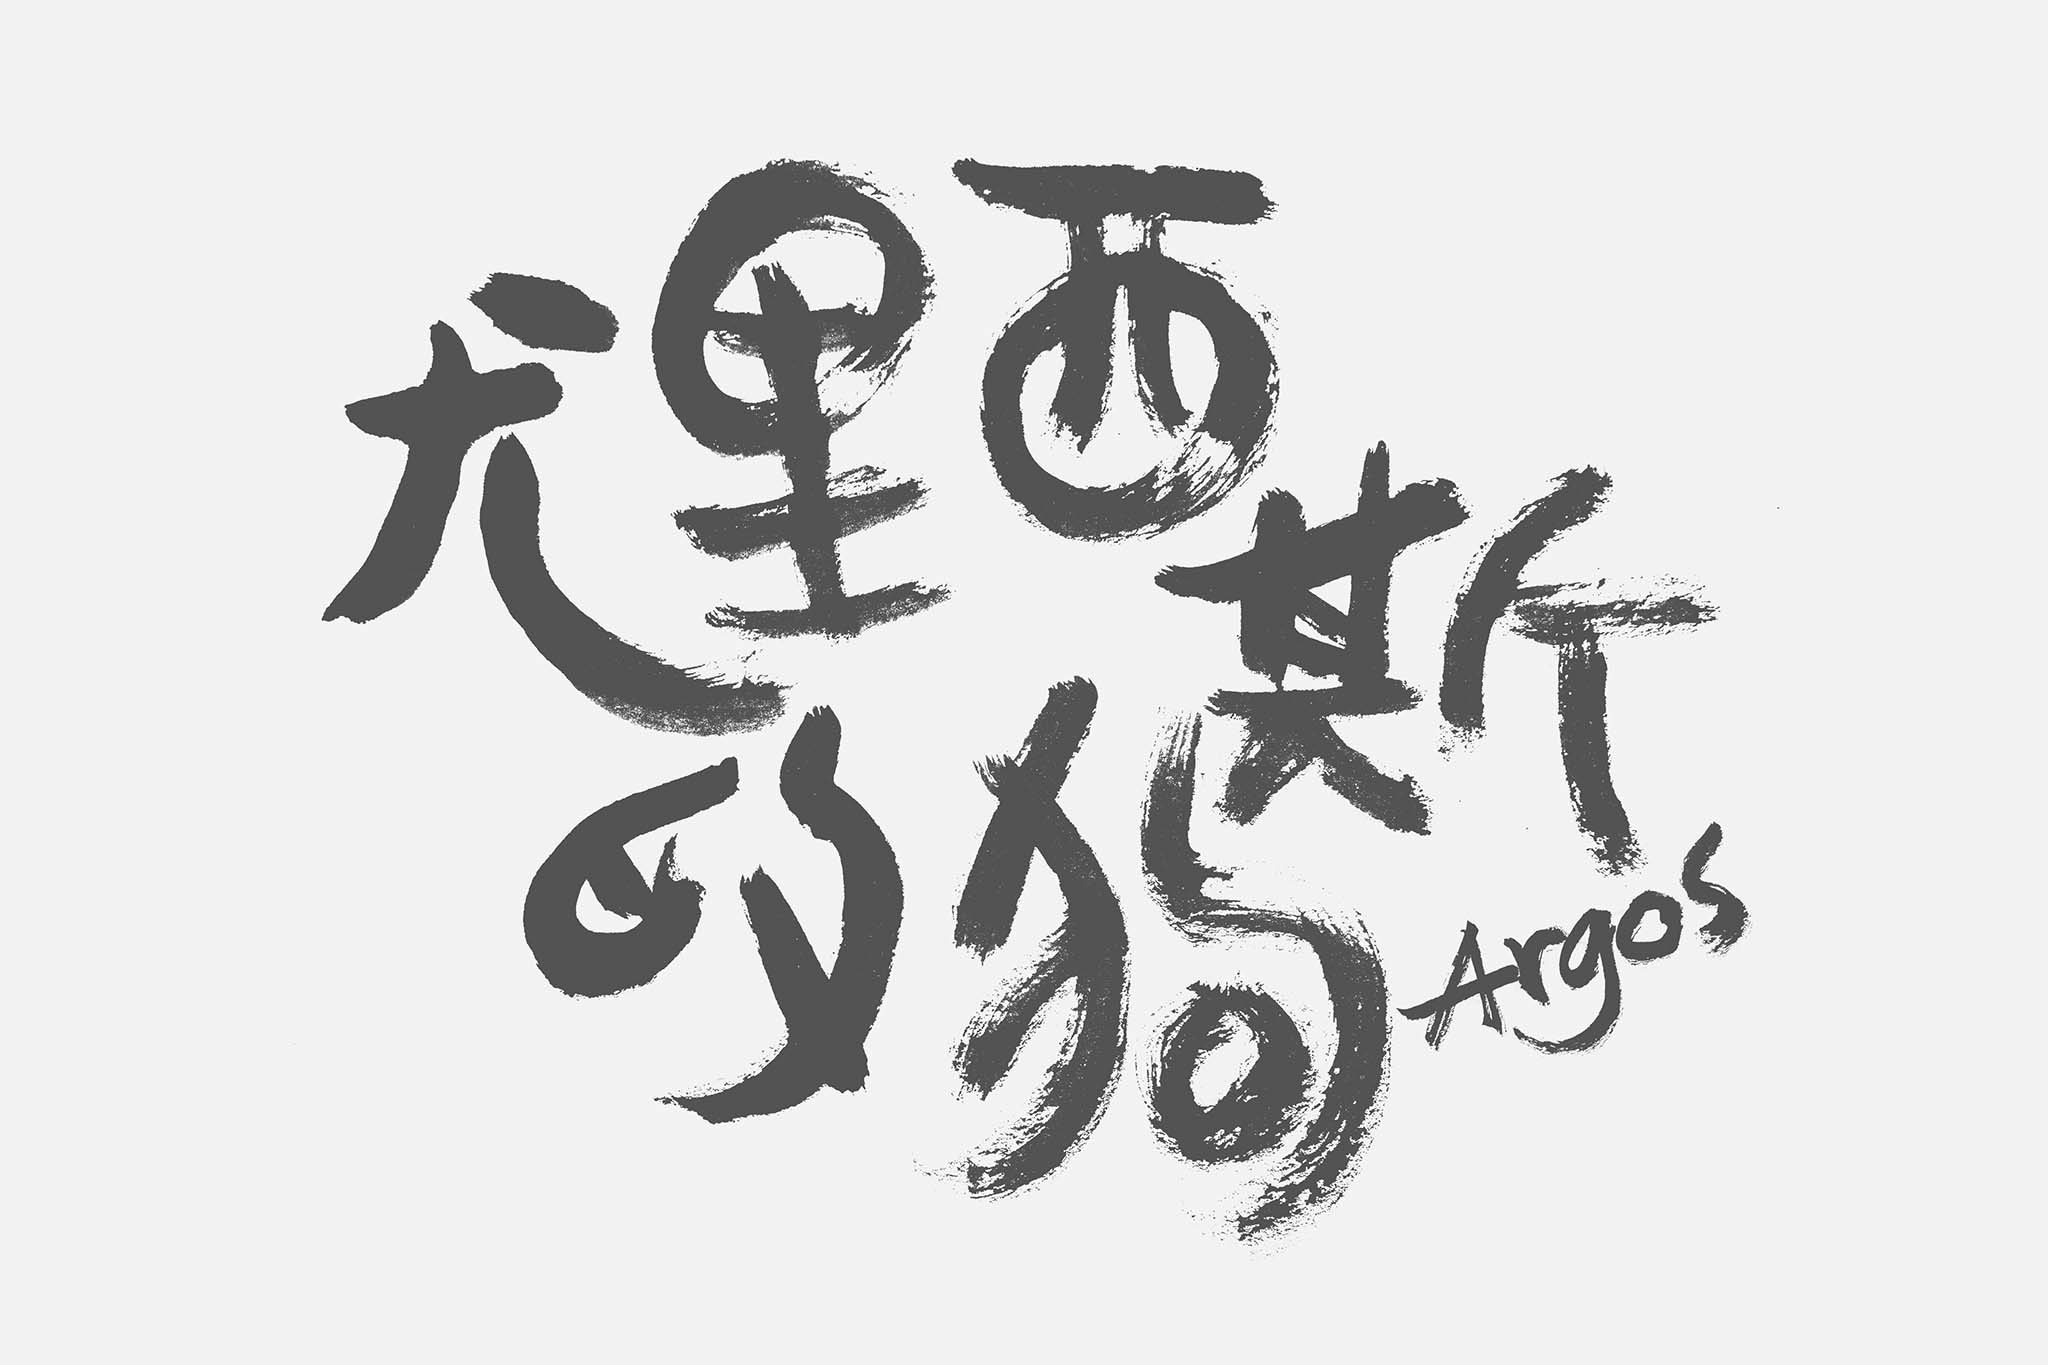 尤里西斯
的狗
Argos